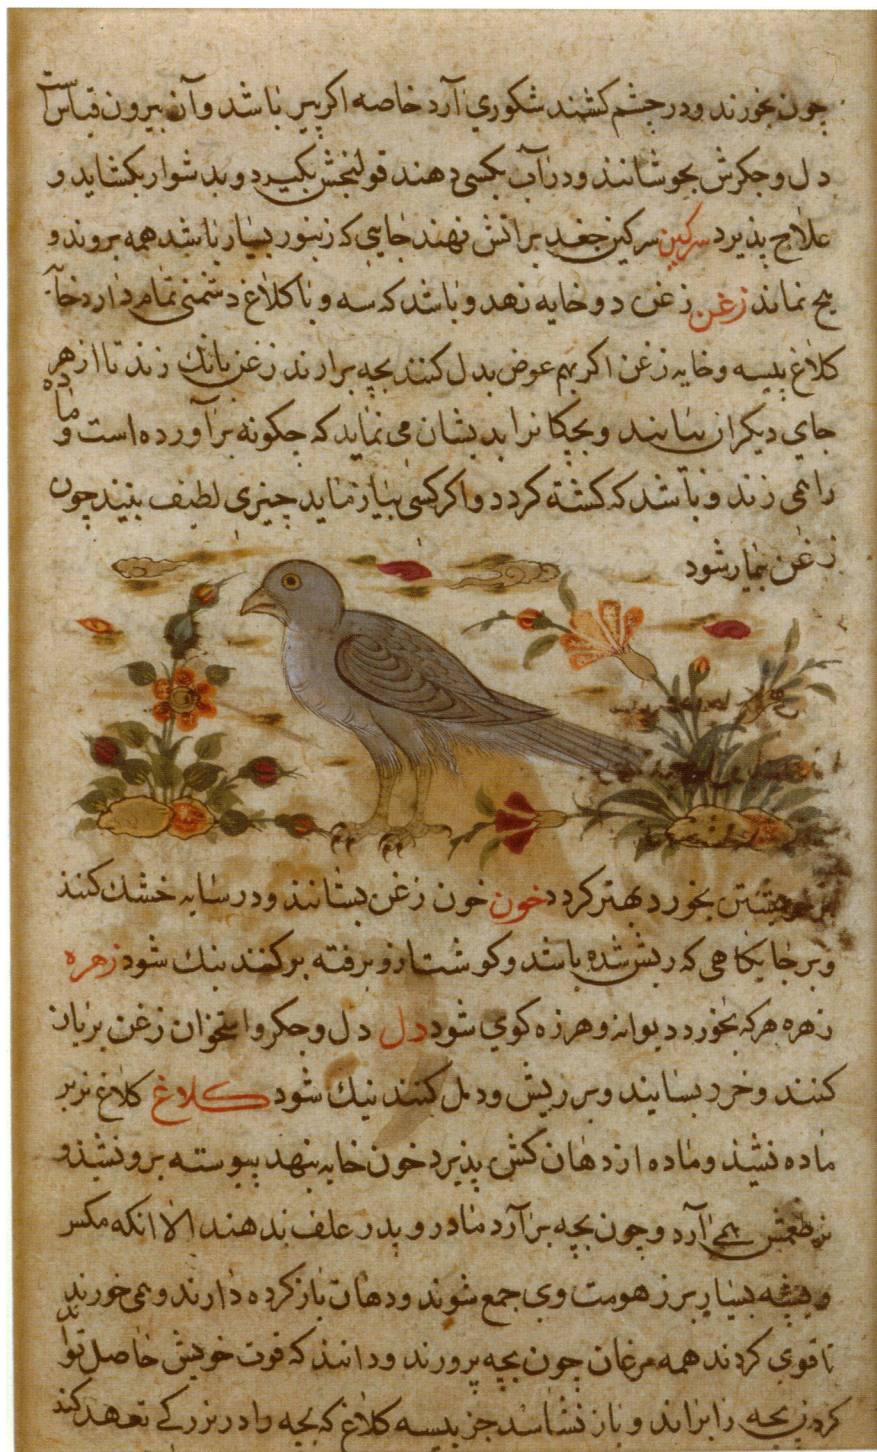 چون بخورند ودر چشم کشند شکوری آرد خاصه اکر پیر باشد وآن بیرون قیاس است
دل وجکرش بجوشانند ودرآب بکسی دهند قولنجش بکیرد وبد شوار بکشاید و
علاج پذیرد سرکین سرکین جغد برآتش نهند جایی که زنبور بسیار باشد همه بروند و
هیچ نماند زغن زغن دو خایه نهد وباشد که سه و باکلاغ دشمنی تمام دارد خایه
کلاغ پیسه وخایه زغن اکر بهم عوض بدل کنند بچه برارند زغن بانك زند تا از هر
جای دیکران بیایند وبچکانرا بدیشان می نماید که چکونه برآورده است و ماده
را همی زند وباشد که کشته کردد واکر کسی بیازماید چیزی لطیف بیند چون
زغن بیمار شود
بخورد بهتر کردد خون خون زغن بستانند ودر سایه خشك کنند
وبر جایکاهی که ریش شده باشد وکوشت ازو برفته برکنند نیك شود زهره
زهره هرکه بخورد دیوانه وهرزه کوی شود دل دل وجکر واستخوان زغن بریان
کنند وخرد بسایند وبر ریش ودمل کنند نیك شود کلاغ کلاغ نر بر
ماده نشیند وماده از دهان کشن پذیرد چون خایه بنهد پیوسته برو نشیند و
نر طعمش همی آرد وچون بچه برآرد مادر وپدر علف ندهند الا انکه مکس
وپشه بسیار بر زهومت وی جمع شوند ودهان باز کرده دارند وهمی خورند
تا قوی کردند همه مرغان چون بچه پرورند ودانند که قوت خویش حاصل تواند
کردن بچه را براند و باز نشناسد جز پیسه کلاغ که بچه را در بزرکی تعهد کند